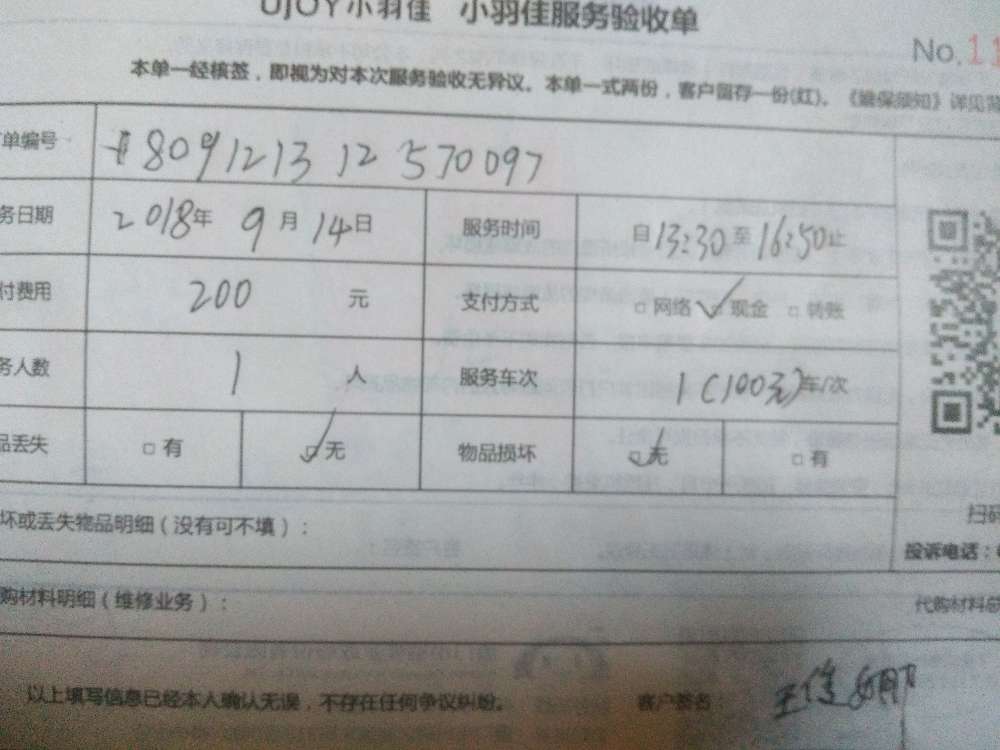 UJOY小羽佳 小羽佳服务验收单
No.11
本单一经核签，即视为对本次服务验收无异议。本单一式两份，客户留存一份(红)。《维保须知》详见背
单编号 8091213 12 570097
务日期 2018年 9月 14日 服务时间 自13:30至16:50止
付费用 200 元 支付方式 □网络 ✓现金 □转账
务人数 1 人 服务车次 1(100元)车/次
品丢失 □有 ☑无 物品损坏 ☑无 □有
坏或丢失物品明细（没有可不填）：
扫码
投诉电话：
购材料明细（维修业务）： 代购材料总
以上填写信息已经本人确认无误，不存在任何争议纠纷。 客户签名 王佳